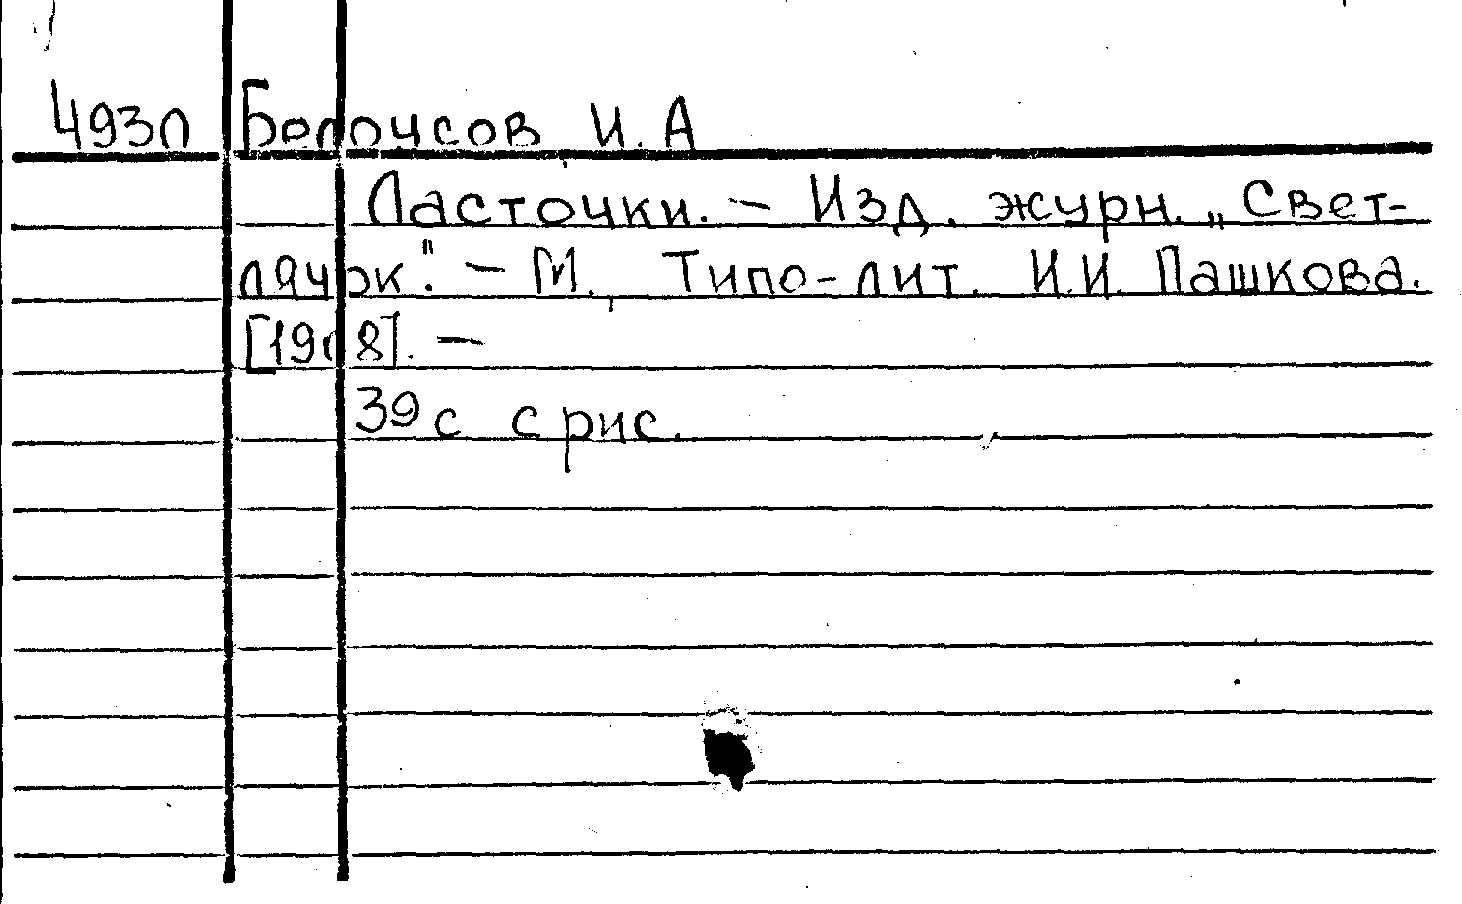 493л Белоусов И. А
Ласточки. – Изд. журн. „Свет-
лячок". – М., Типо-лит. И.И. Пашкова.
[1908]. –
39 с с рис.